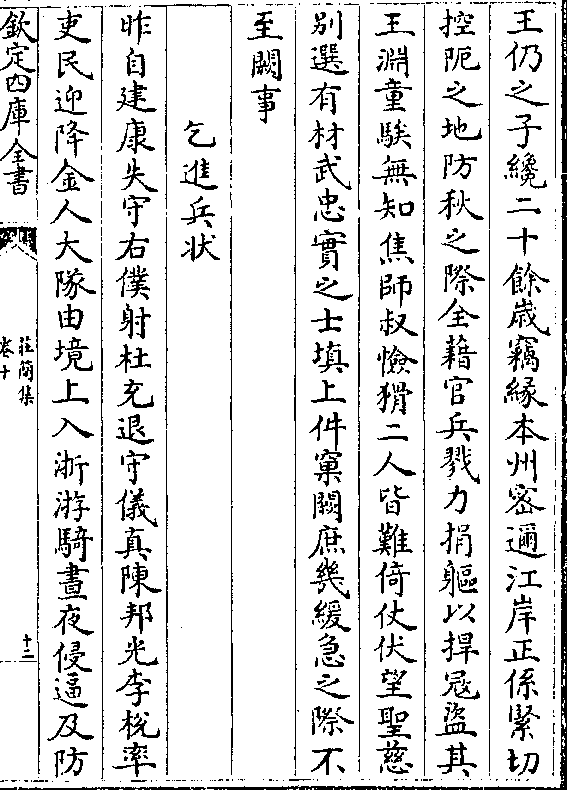 王仍之子纔二十餘歳竊緣本州密邇江岸正係緊切
控阨之地防秋之際全藉官兵戮力捐軀以捍冦盜其
王淵童騃無知焦師叔憸猾二人皆難倚仗伏望聖慈
别選有材武忠實之士填上件窠闕庶幾緩急之際不
至闕事
乞進兵狀
昨自建康失守右僕射杜充退守儀真陳邦光李梲率
吏民迎降金人大隊由境上入浙游騎晝夜侵逼及防
欽定四庫全書
莊簡集
卷十
十二